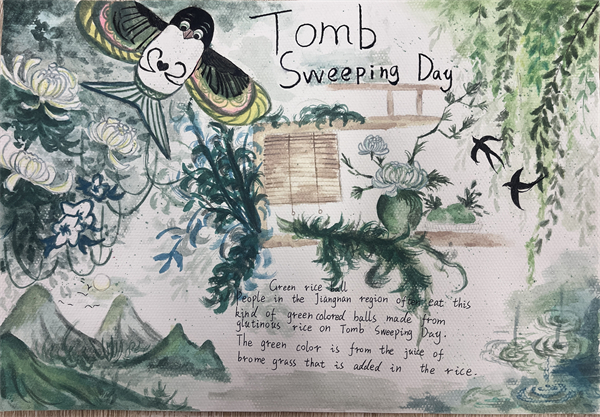 Tomb
Sweeping Day
Green rice ball
People in the Jiangnan region often eat this
kind of green colored balls made from
glutinous rice on Tomb Sweeping Day.
The green color is from the juice of
brome grass that is added in the rice.